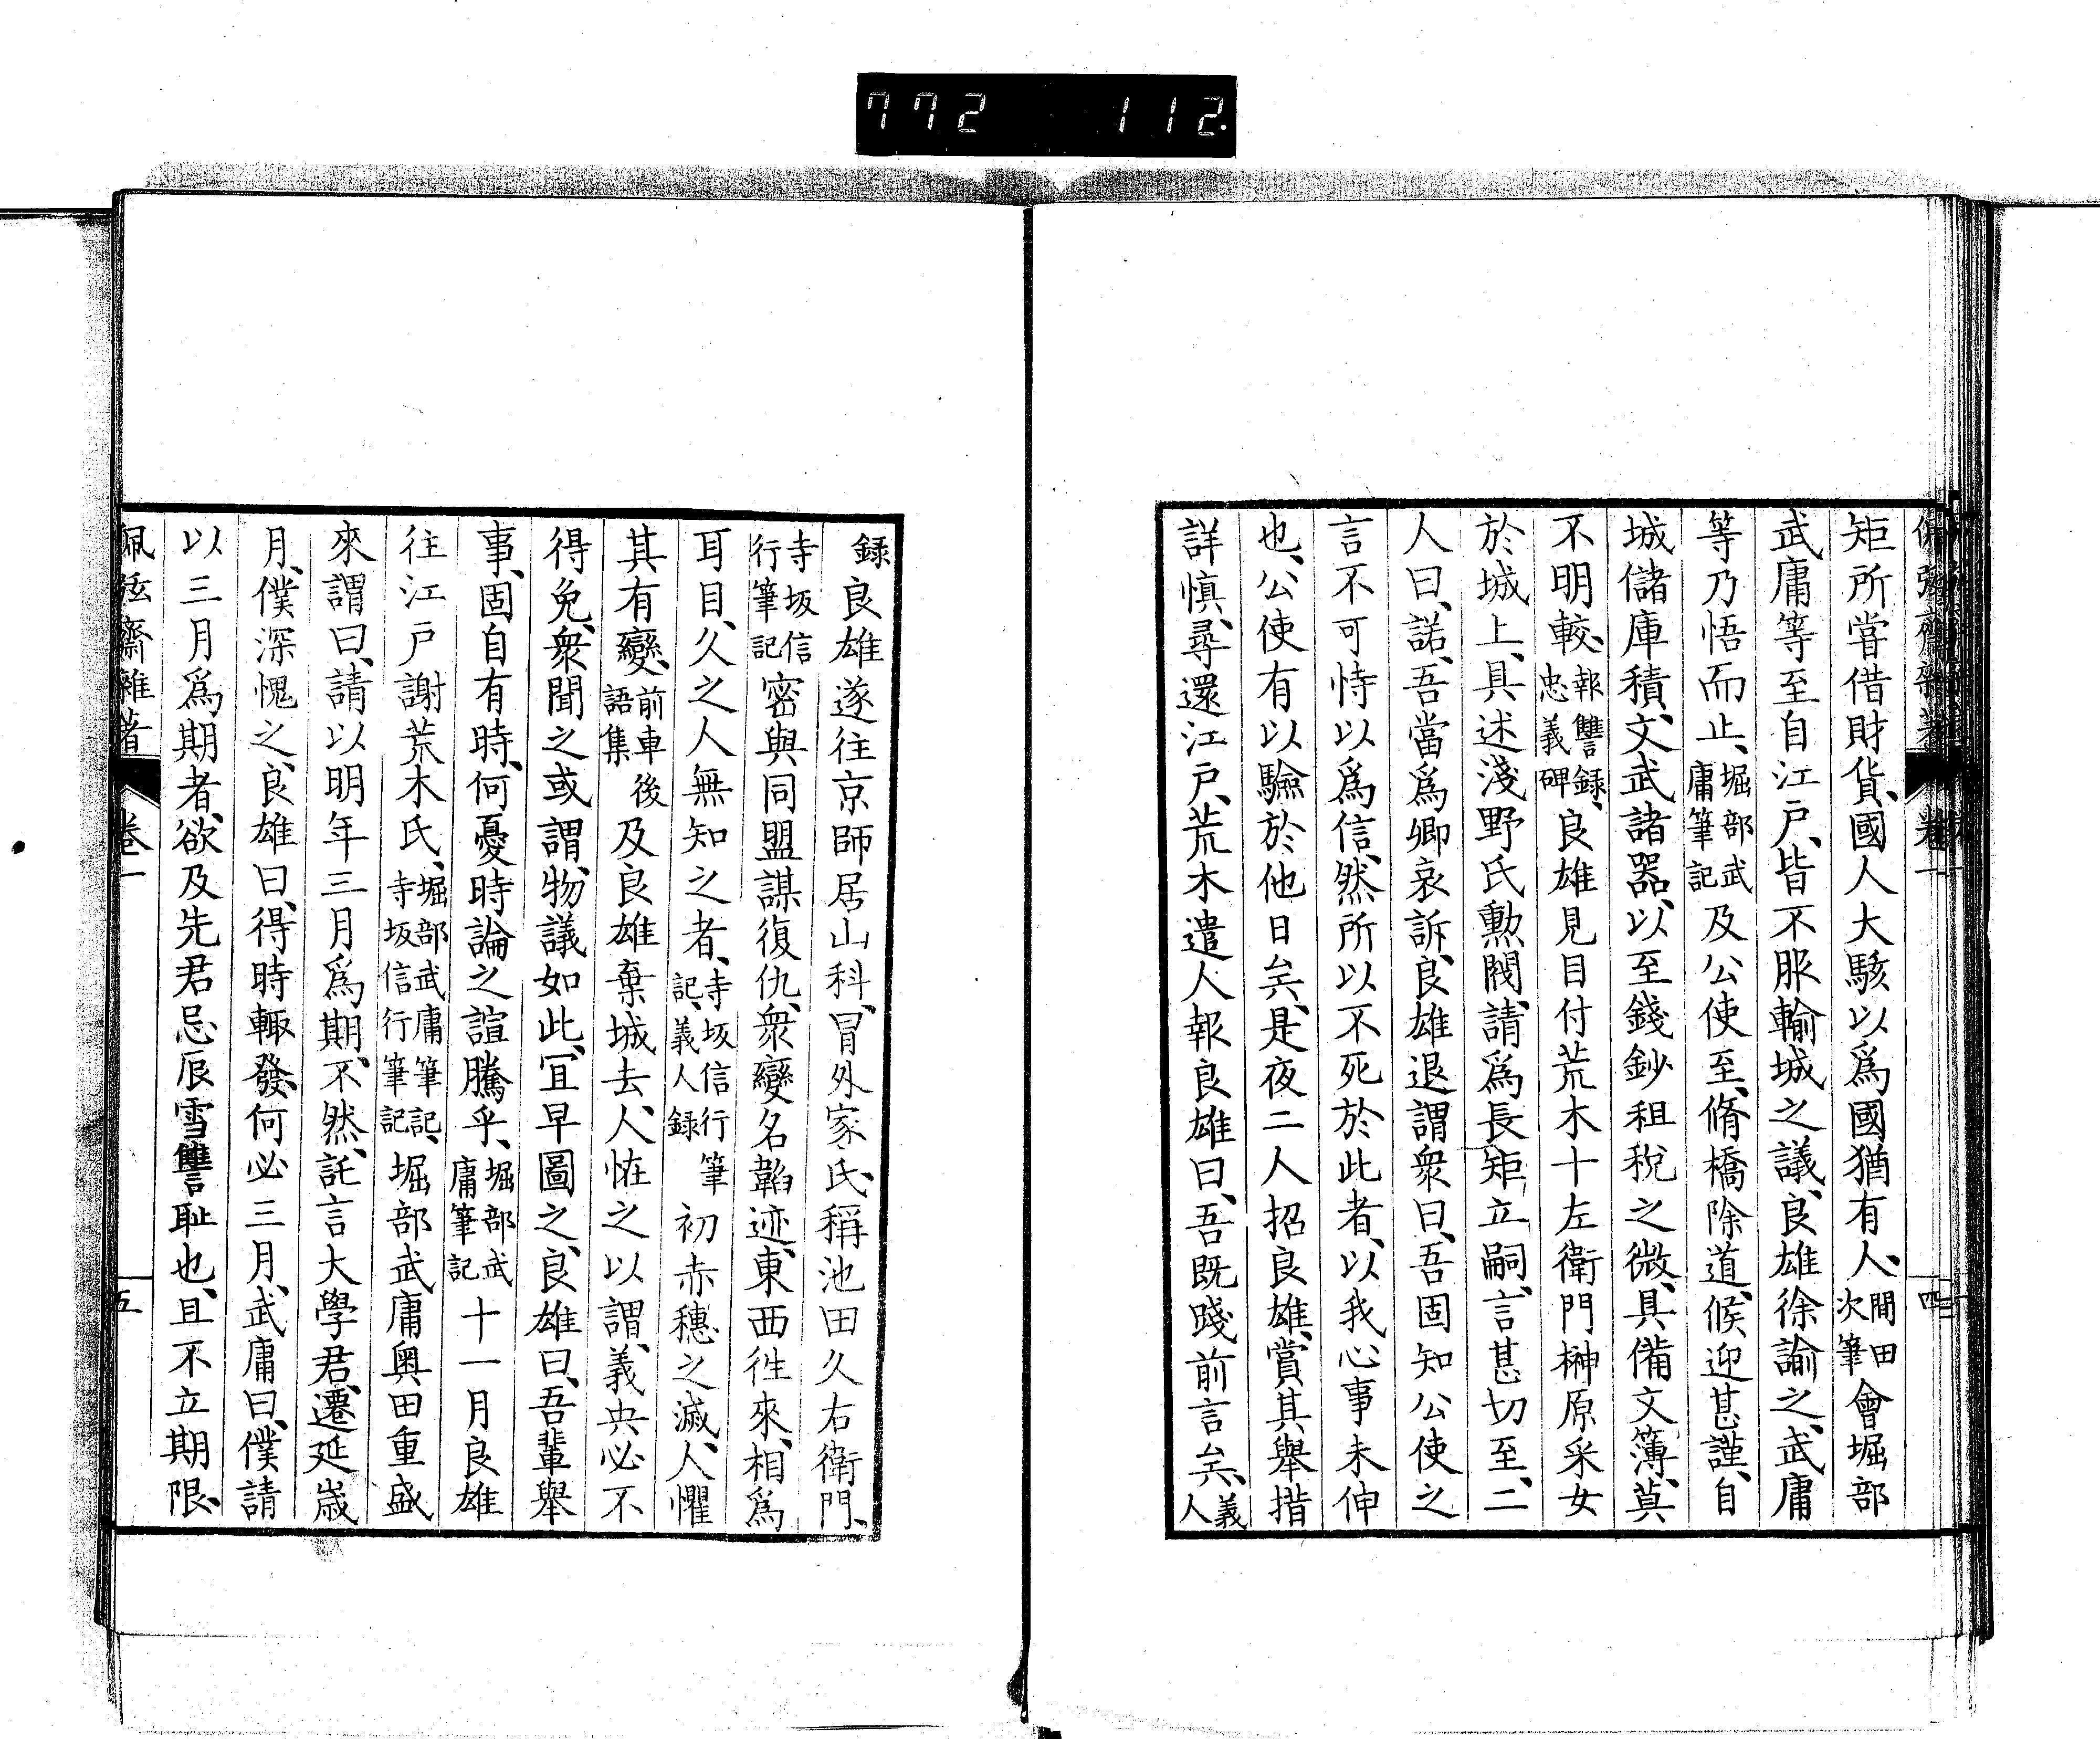 772 112.
矩所嘗借財貨、國人大駭以爲國猶有人、間田次筆會堀部
武庸等至自江戸、皆不服輸城之議、良雄徐諭之、武庸
等乃悟而止、堀部武庸筆記及公使至、脩橋除道、候迎甚謹、自
城儲庫積、文武諸器、以至錢鈔租稅之微、具備文簿、莫
不明較、報讐錄、忠義碑良雄見目付荒木十左衛門榊原采女
於城上、具述淺野氏勲閥、請爲長矩立嗣、言甚切至、二
人曰、諾、吾當爲卿哀訴、良雄退謂衆曰、吾固知公使之
言不可恃以爲信、然所以不死於此者、以我心事未伸
也、公使有以驗於他日矣、是夜二人招良雄、賞其舉措
詳愼、尋還江戸、荒木遣人報良雄曰、吾既踐前言矣、義人
錄良雄遂往京師居山科、冒外家氏、稱池田久右衛門、
寺坂信行筆記密與同盟謀復仇、衆變名韜迹、東西徃來、相爲
耳目、久之人無知之者、寺坂信行筆記、義人錄初赤穗之滅、人懼
其有變、前車後語集及良雄棄城去、人恠之以謂、義央必不
得免、衆聞之或謂、物議如此、宜早圖之、良雄曰、吾輩舉
事、固自有時、何憂時論之諠騰乎、堀部武庸筆記十一月良雄
往江戸謝荒木氏、堀部武庸筆記、寺坂信行筆記堀部武庸奥田重盛
來謂曰、請以明年三月爲期、不然、託言大學君、遷延歳
月、僕深愧之、良雄曰、得時輙發、何必三月、武庸曰、僕請
以三月爲期者、欲及先君忌辰雪讐恥也、且不立期限、
佩弦齋雜著 卷一 五